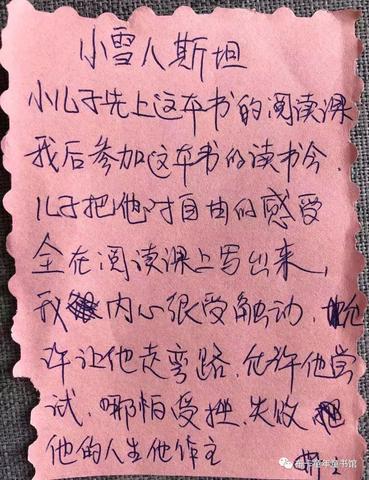 小雪人斯坦
小儿子先上这本书的阅读课
我后参加这本书的读书会.
儿子把他对自由的感受
全在阅读课上写出来,
我内心很受触动.允
许让他走弯路.允许他尝
试.哪怕受挫.失败
他的人生他作主
童年童书馆